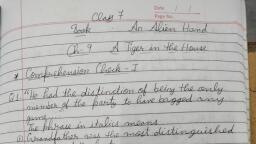 Date / /
Page No.
Class 7
Book : An Alien Hand
Ch. 9 A Tiger in the House
* Comprehension Check - I
Q1 "He had the distinction of being the only
member of the party to have bagged any
game."
The phrase in italics means
(i) Grandfather was the most distinguished